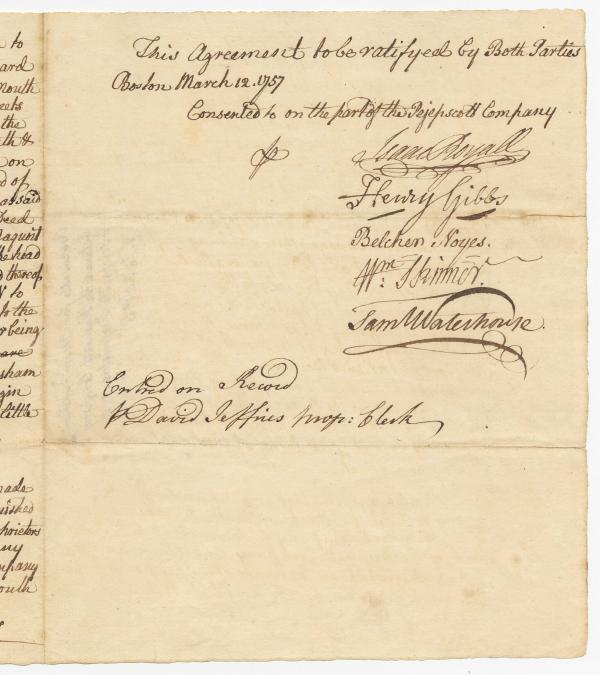 to
ard
mouth
the
on
of
said
Maquoit
the head
thereof
to
to the
or being
are
sham
gin
little
made
uished
oprietors
any
mpany
outh
This Agreement to be ratifyed by Both Parties
Boston March 12. 1757
Consented to on the part of the Pejepscott Company
Isaac Royall
Henry Gibbs
Belcher Noyes.
Wm: Skinner.
Sam Waterhouse.
Entred on Record
David Jeffries Prop: Clerk